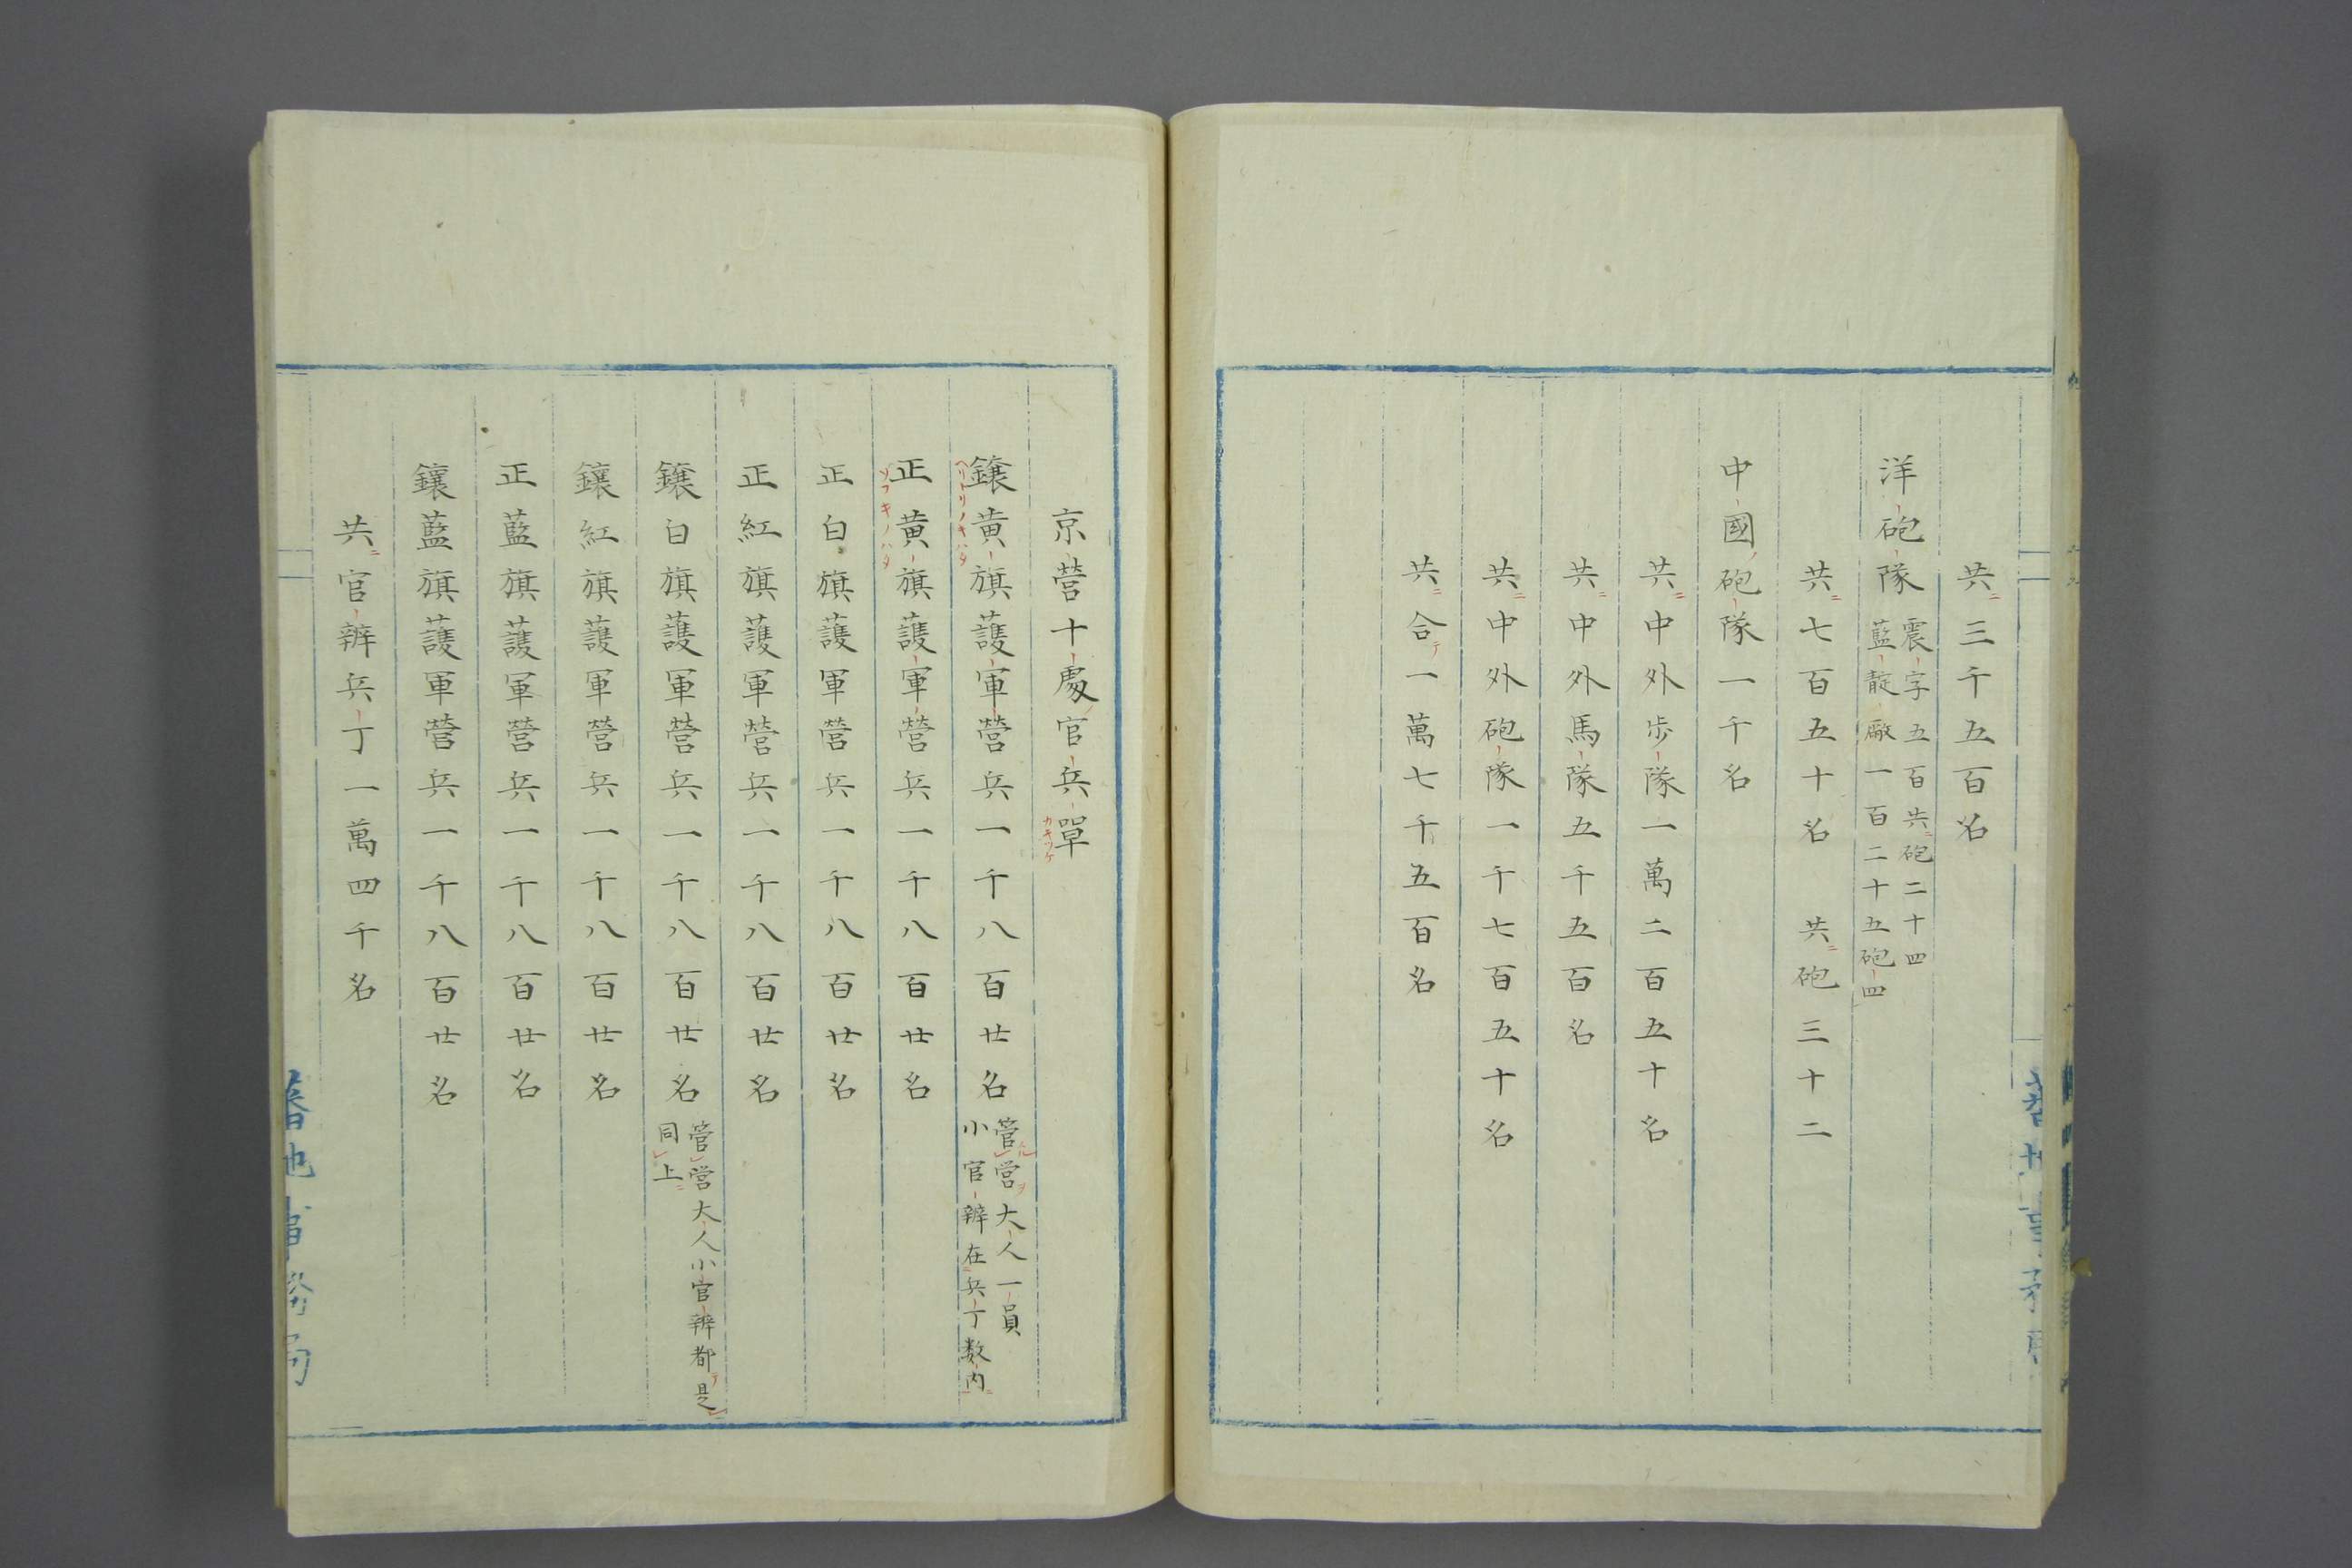 共ニ三千五百名
洋砲隊 震字五百共ニ砲二十四
藍靛廠一百二十五砲四
共ニ七百五十名 共ニ砲三十二
中國ノ砲隊一千名
共ニ中外歩隊一萬二百五十名
共ニ中外馬隊五千五百名
共ニ中外砲隊一千七百五十名
共ニ合テ一萬七千五百名
京営十處官兵單
カキツケ
鑲黄旗護軍営兵一千八百廿名 管ル営ヲ大人一員
小官辨在兵丁数内
ヘリトリノキハタ
正黄旗護軍営兵一千八百廿名
ソフキノハタ
正白旗護軍営兵一千八百廿名
正紅旗護軍営兵一千八百廿名
鑲白旗護軍営兵一千八百廿名 管営大人小官辨都テ是
同上
鑲紅旗護軍営兵一千八百廿名
正藍旗護軍営兵一千八百廿名
鑲藍旗護軍営兵一千八百廿名
共ニ官辨兵丁一萬四千名
蕃地事務局